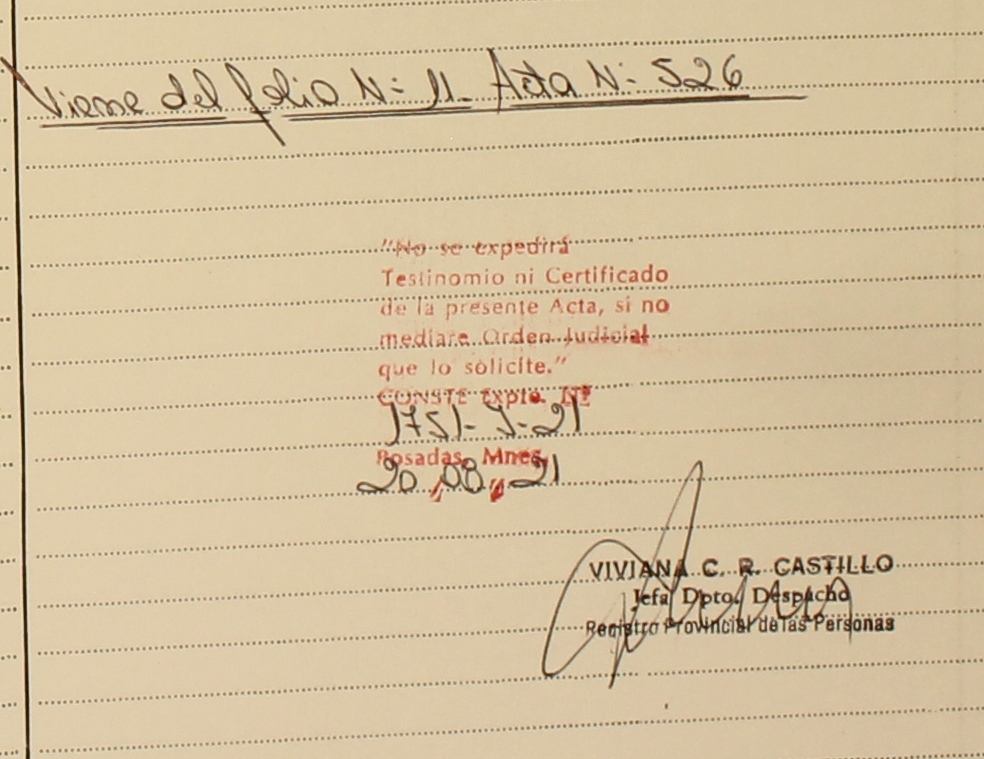 Viene del folio N: 11. Acta N: 526
"No se expedirá
Testinomio ni Certificado
de la presente Acta, si no
mediare Orden Judicial
que lo solicite."
CONSTE Expte. Nº
1751-J-21
Posadas, Mnes,
20/08/21
VIVIANA C. R. CASTILLO
Jefa Dpto. Despacho
Registro Provincial de las Personas